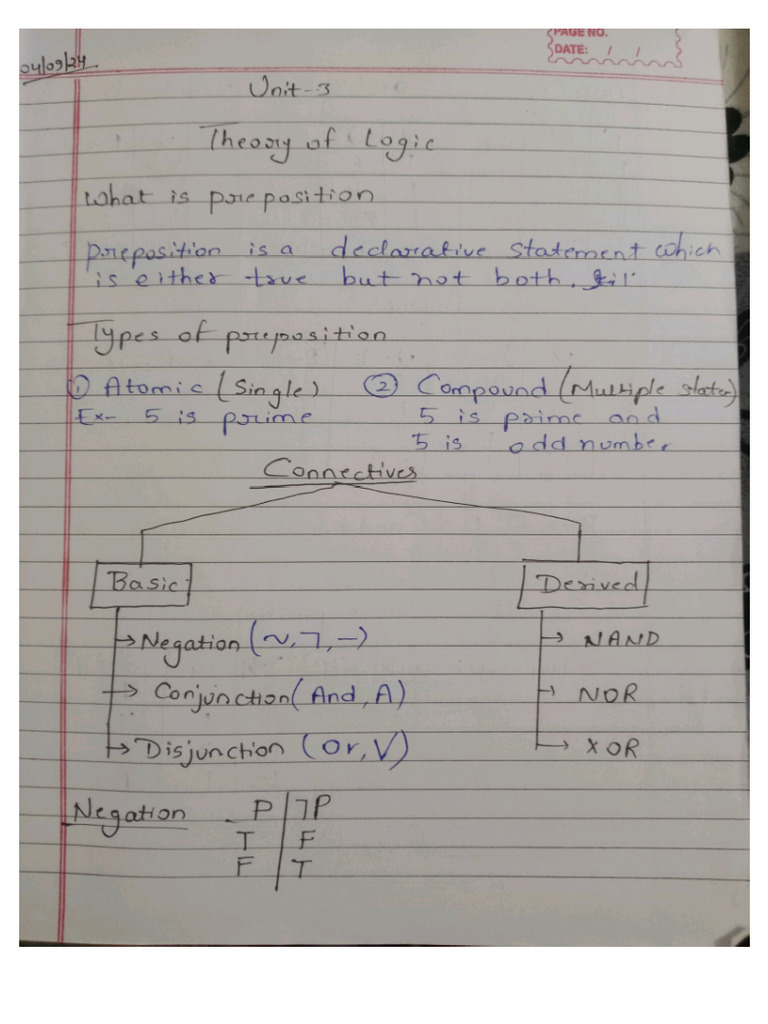 PAGE NO.
DATE: / /
04/09/24
Unit-3
Theory of Logic
What is preposition
preposition is a declarative statement which
is either true but not both.
Types of preposition
① Atomic (Single) ② Compound (Multiple
Ex- 5 is prime 5 is prime and
5 is odd number
Connectives
Basic Derived
→ Negation (~, ㄱ, -) → NAND
→ Conjunction (And, A) → NOR
→ Disjunction (Or, V) → XOR
Negation P | ㄱP
T | F
F | T